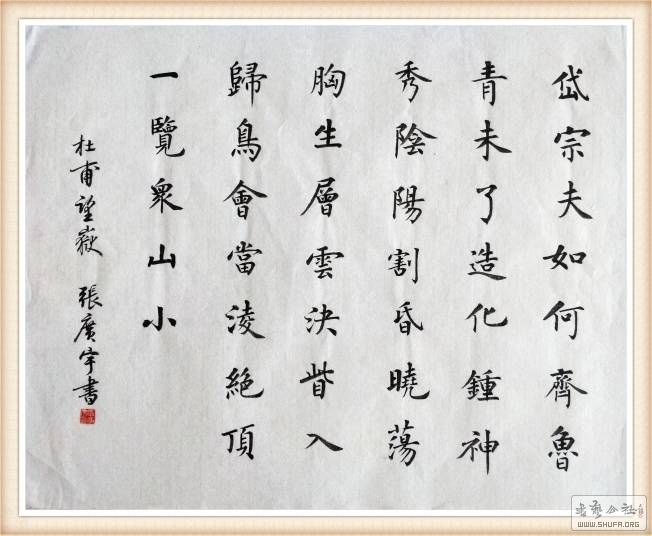 岱宗夫如何齊魯
青未了造化鍾神
秀陰陽割昏曉蕩
胸生層雲決眥入
歸鳥會當淩絕頂
一覽衆山小
杜甫望嶽 張廣宇書
WWW.SHUFA.ORG